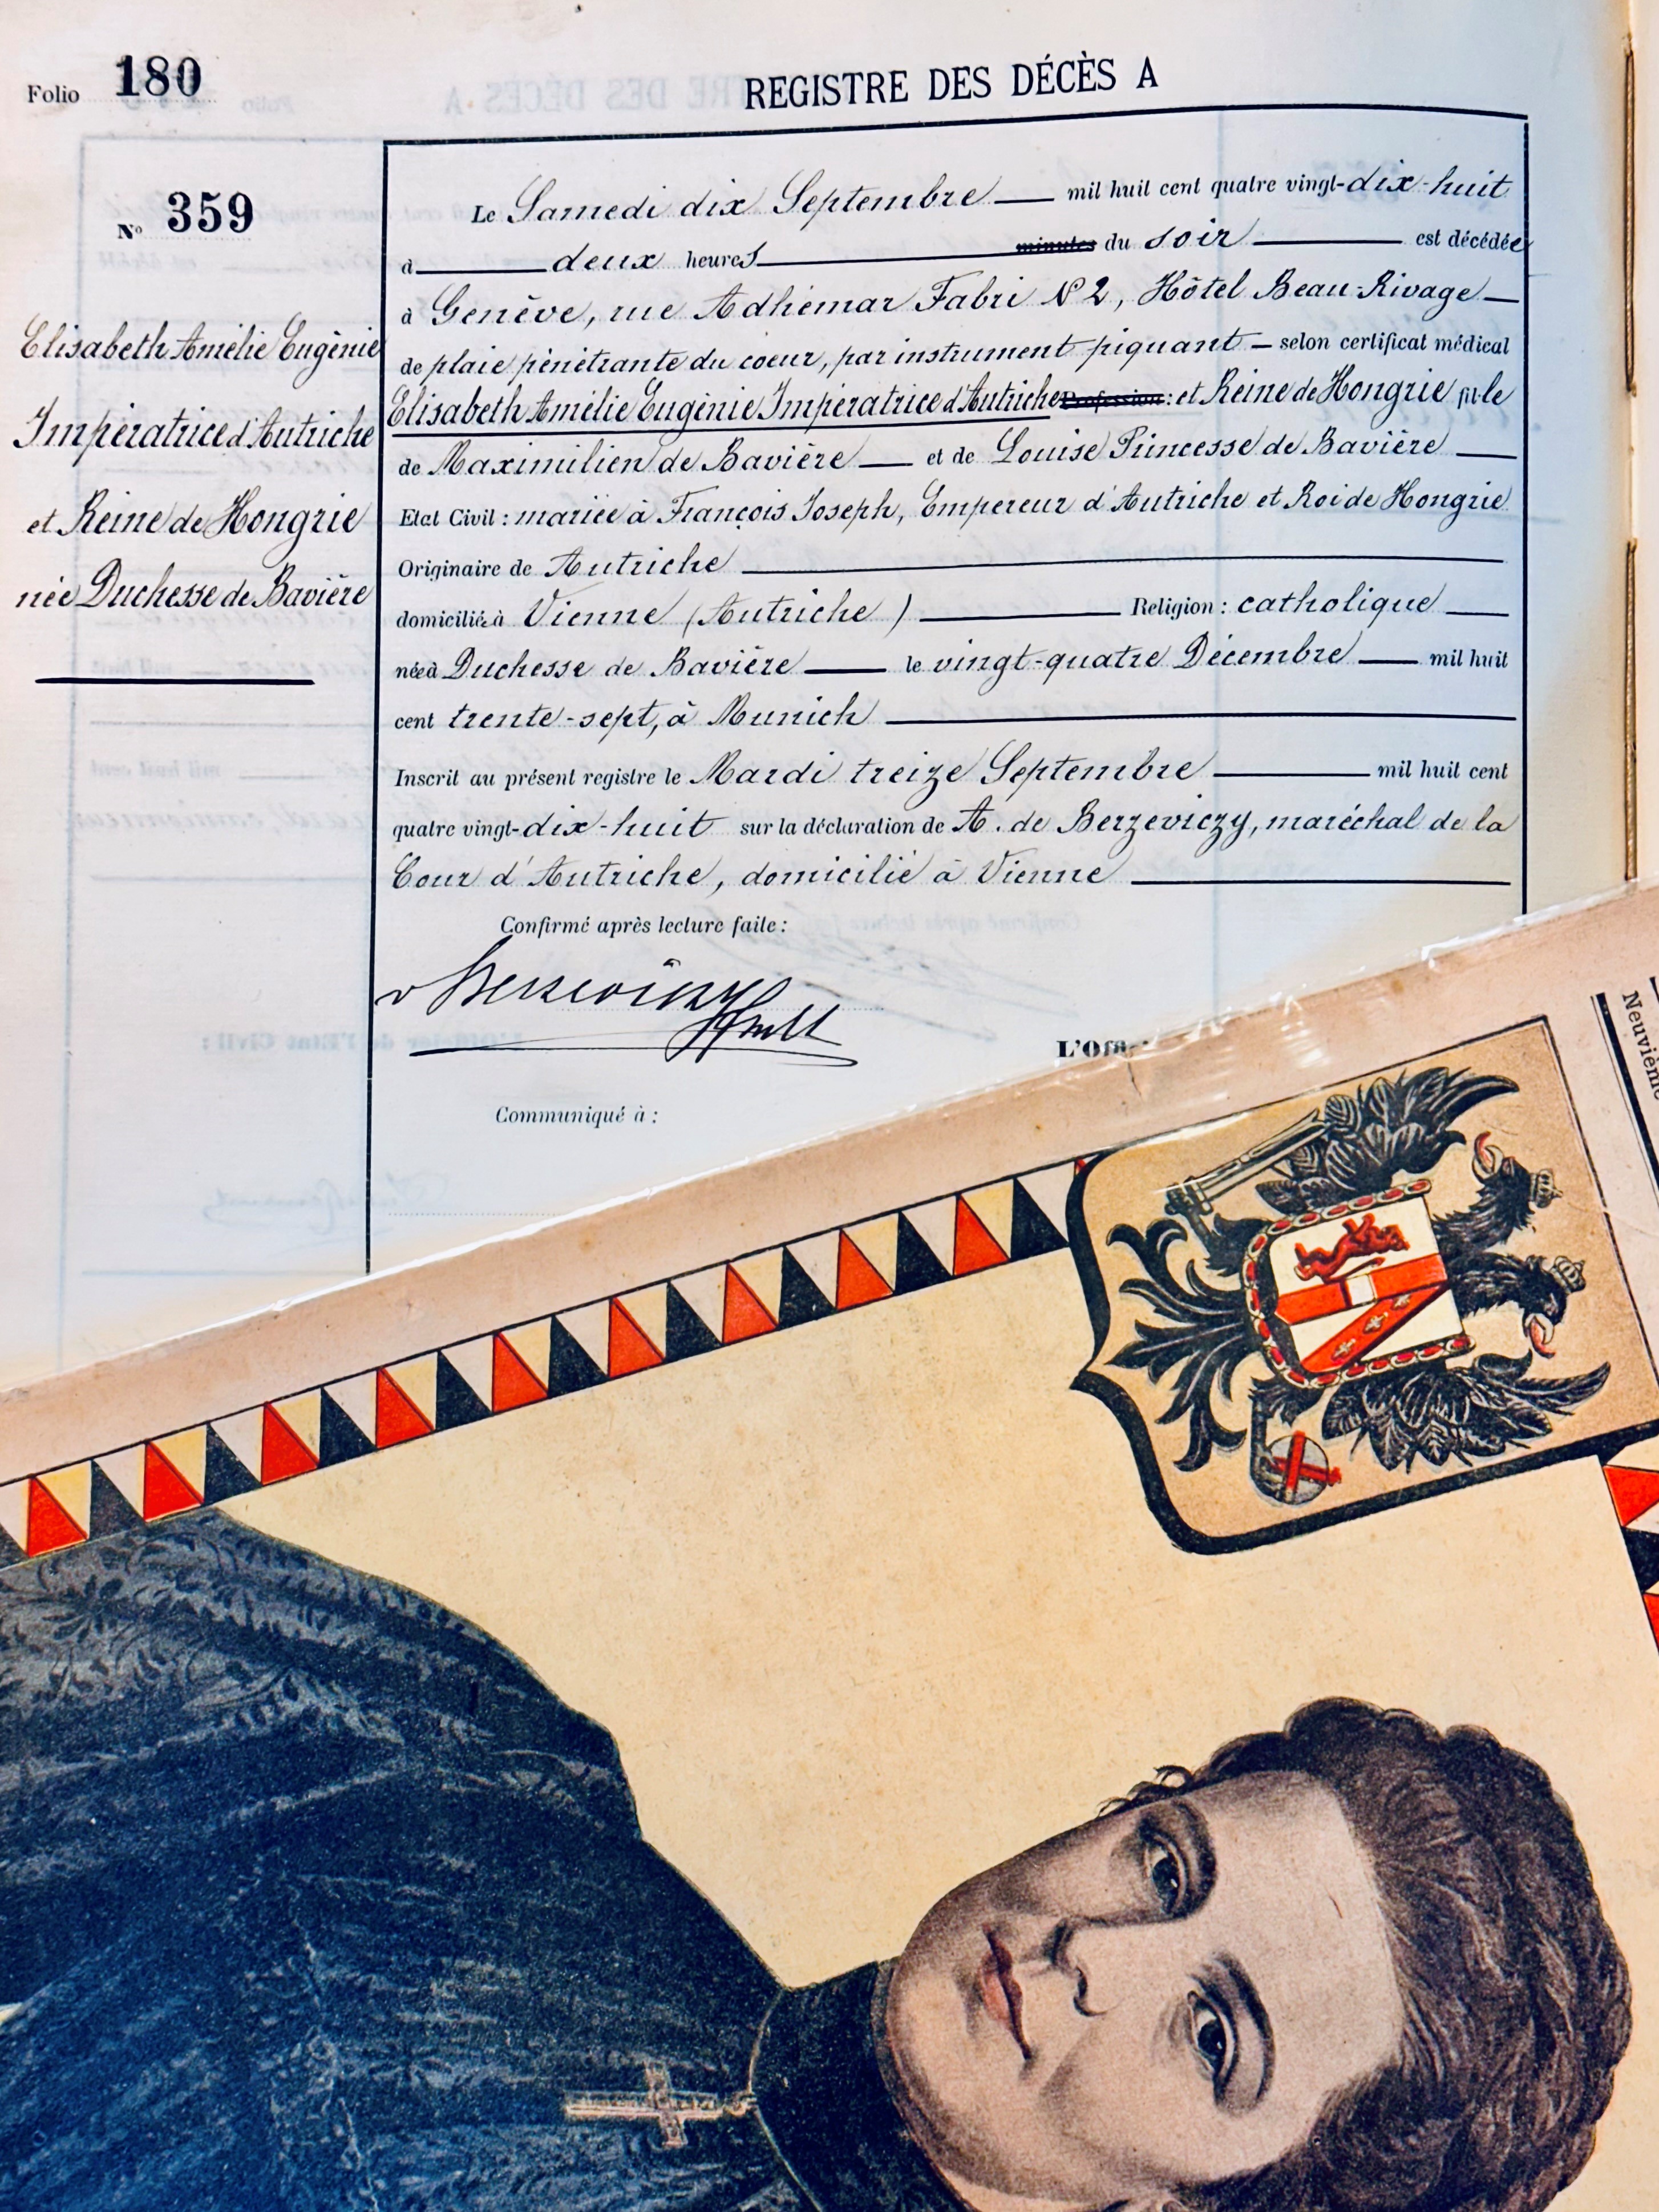 Folio 180
REGISTRE DES DÉCÈS A
N° 359
Elisabeth Amélie Eugénie
Impératrice d'Autriche
et Reine de Hongrie
née Duchesse de Bavière
Le Samedi dix Septembre mil huit cent quatre vingt-dix-huit
à deux heures minutes du soir est décédée
à Genève, rue Adhémar Fabri N° 2, Hôtel Beau-Rivage
de plaie pénétrante du coeur, par instrument piquant — selon certificat médical
Elisabeth Amélie Eugénie Impératrice d'Autriche Profession: et Reine de Hongrie fille
de Maximilien de Bavière et de Louise Princesse de Bavière
Etat Civil : mariée à François Joseph, Empereur d'Autriche et Roi de Hongrie
Originaire de Autriche
domiciliée à Vienne (Autriche) Religion : catholique
née à Duchesse de Bavière le vingt-quatre Décembre mil huit
cent trente-sept, à Munich
Inscrit au présent registre le Mardi treize Septembre mil huit cent
quatre vingt-dix-huit sur la déclaration de A. de Berzeviczy, maréchal de la
Cour d'Autriche, domicilié à Vienne
Confirmé après lecture faite :
v Berzeviczy
L'Off
Communiqué à :
Neuvième